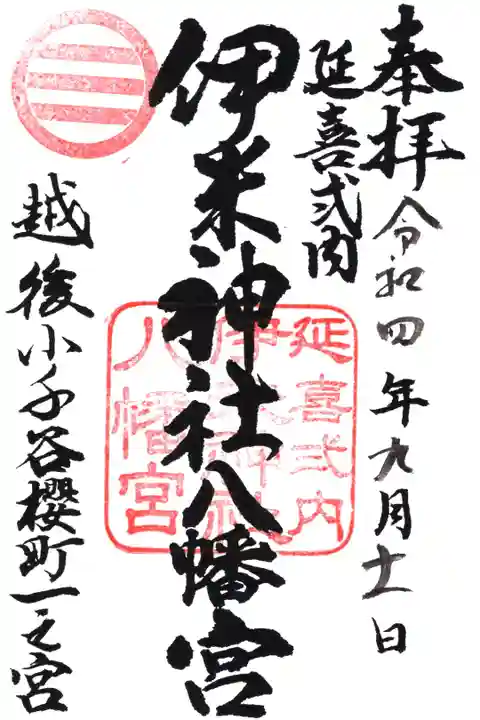 奉拝
令和四年九月十一日
延喜式内
伊米神社八幡宮
越後小千谷櫻町一之宮
延喜式内
伊米神社
八幡宮